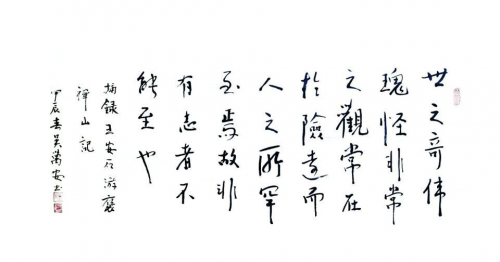 世之奇偉
瑰怪非常
之觀常在
於險遠而
人之所罕
至焉故非
有志者不
能至也
摘錄王安石游褒
禅山記
甲辰春吴萬安书